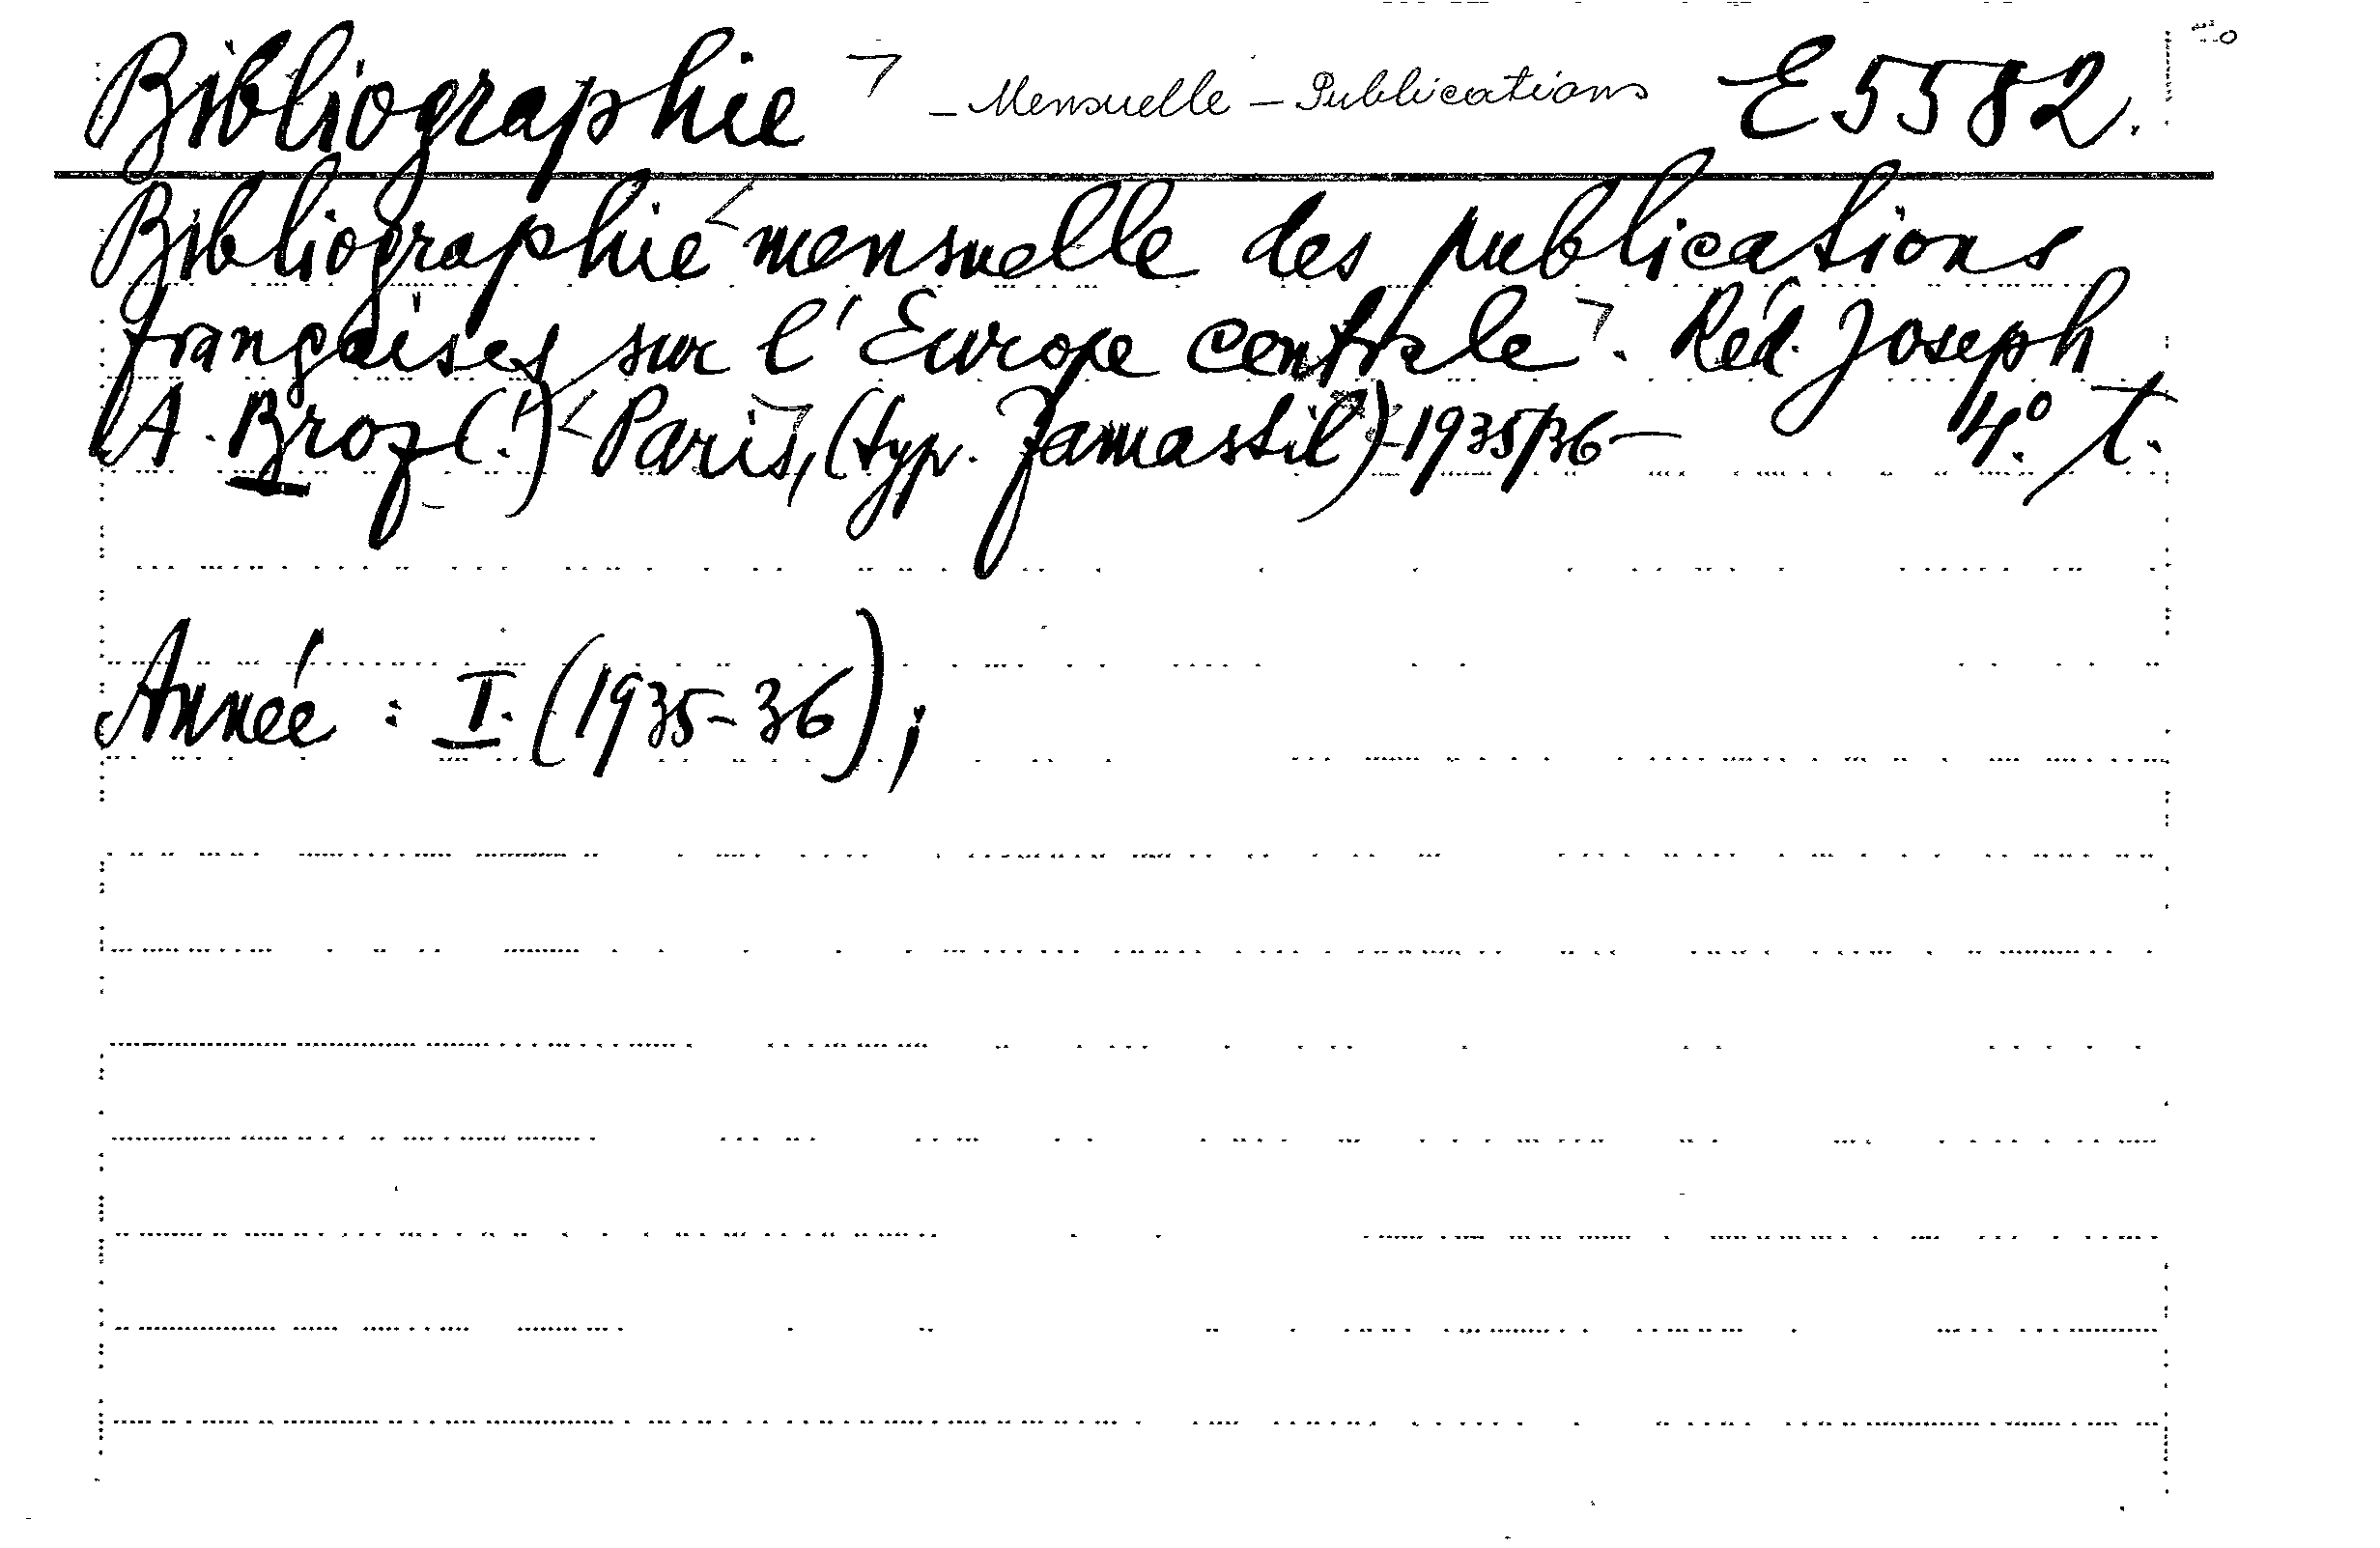 Bibliographie - Mensuelle - Publications E 5582.
Bibliographie mensuelle des publications
françaises sur l'Europe centrale. Réd. Joseph
A. Broz (!) Paris, (typ. Zamastil) 1935/36 — 4.° T.
Année : I. (1935-36);